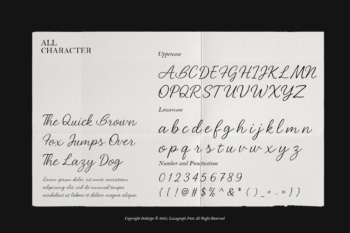 ALL
CHARACTER
Uppercase
ABCDEFGHIJKLMN
OPQRSTUVWXYZ
Lowercase
abcdefghijklmn
opqrstuvwxyz
The Quick Brown
Fox Jumps Over
The Lazy Dog
Lorem ipsum dolor sit amet, consectetur
adipiscing elit, sed do eiusmod tempor
incididunt ut labore et dolore magna aliqua.
Number and Punctuation
0123456789